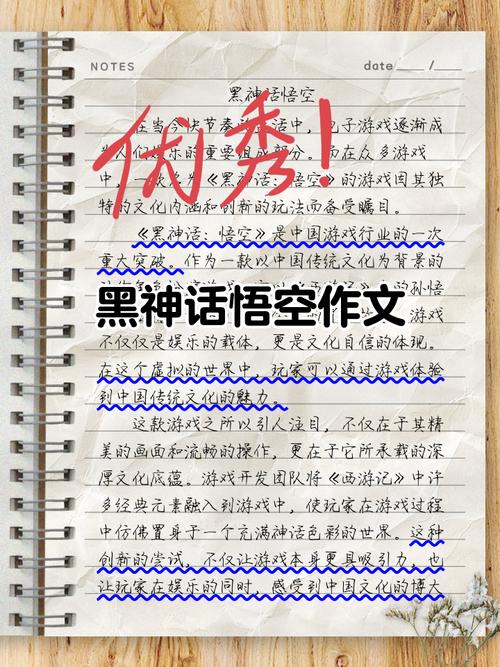 NOTES
date /
黑神话悟空
优秀!
在当今快节奏 活中, 子游戏逐渐成
为人们娱乐的重要组成部分。而在众多游戏
中, 款名为《黑神话:悟空》的游戏因其独
特的文化内涵和创新的玩法而备受瞩目。
《黑神话:悟空》是中国游戏行业的一次
重大突破。作为一款以中国传统文化为背景的
的孙悟
黑神话悟空作文
游戏
不仅仅是娱乐的载体,更是文化自信的体现。
在这个虚拟的世界中,玩家可以通过游戏体验
到中国传统文化的魅力。
这款游戏之所以引人注目,不仅在于其精
美的画面和流畅的操作,更在于它所承载的深
厚文化底蕴。游戏开发团队将《西游记》中许
多经典元素融入到游戏中,使玩家在游戏过程
中仿佛置身于一个充满神话色彩的世界。这种
创新的尝试,不仅让游戏本身更具吸引力,也
让玩家在娱乐的同时,感受到中国文化的博大